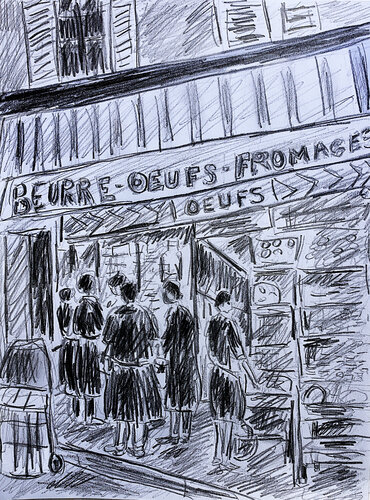 BEURRE-OEUFS-FROMAGES
OEUFS